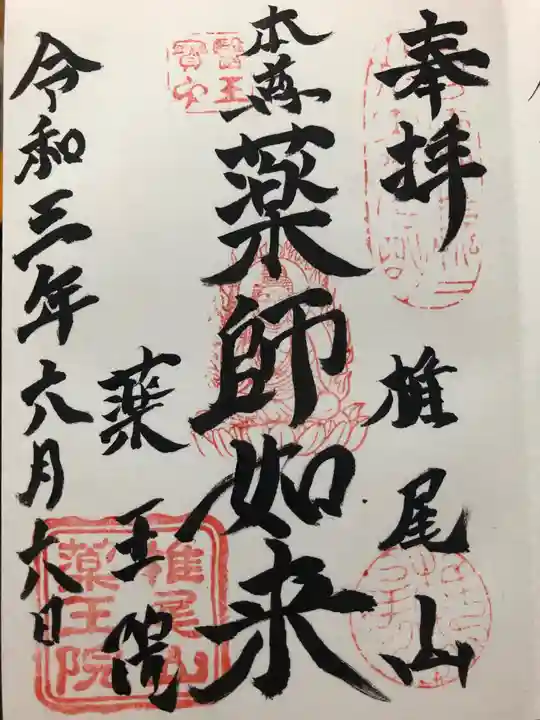 奉拝
雄尾山
本尊
薬師如来
薬王院
令和三年六月六日
醫王寶印
椎尾山薬王院